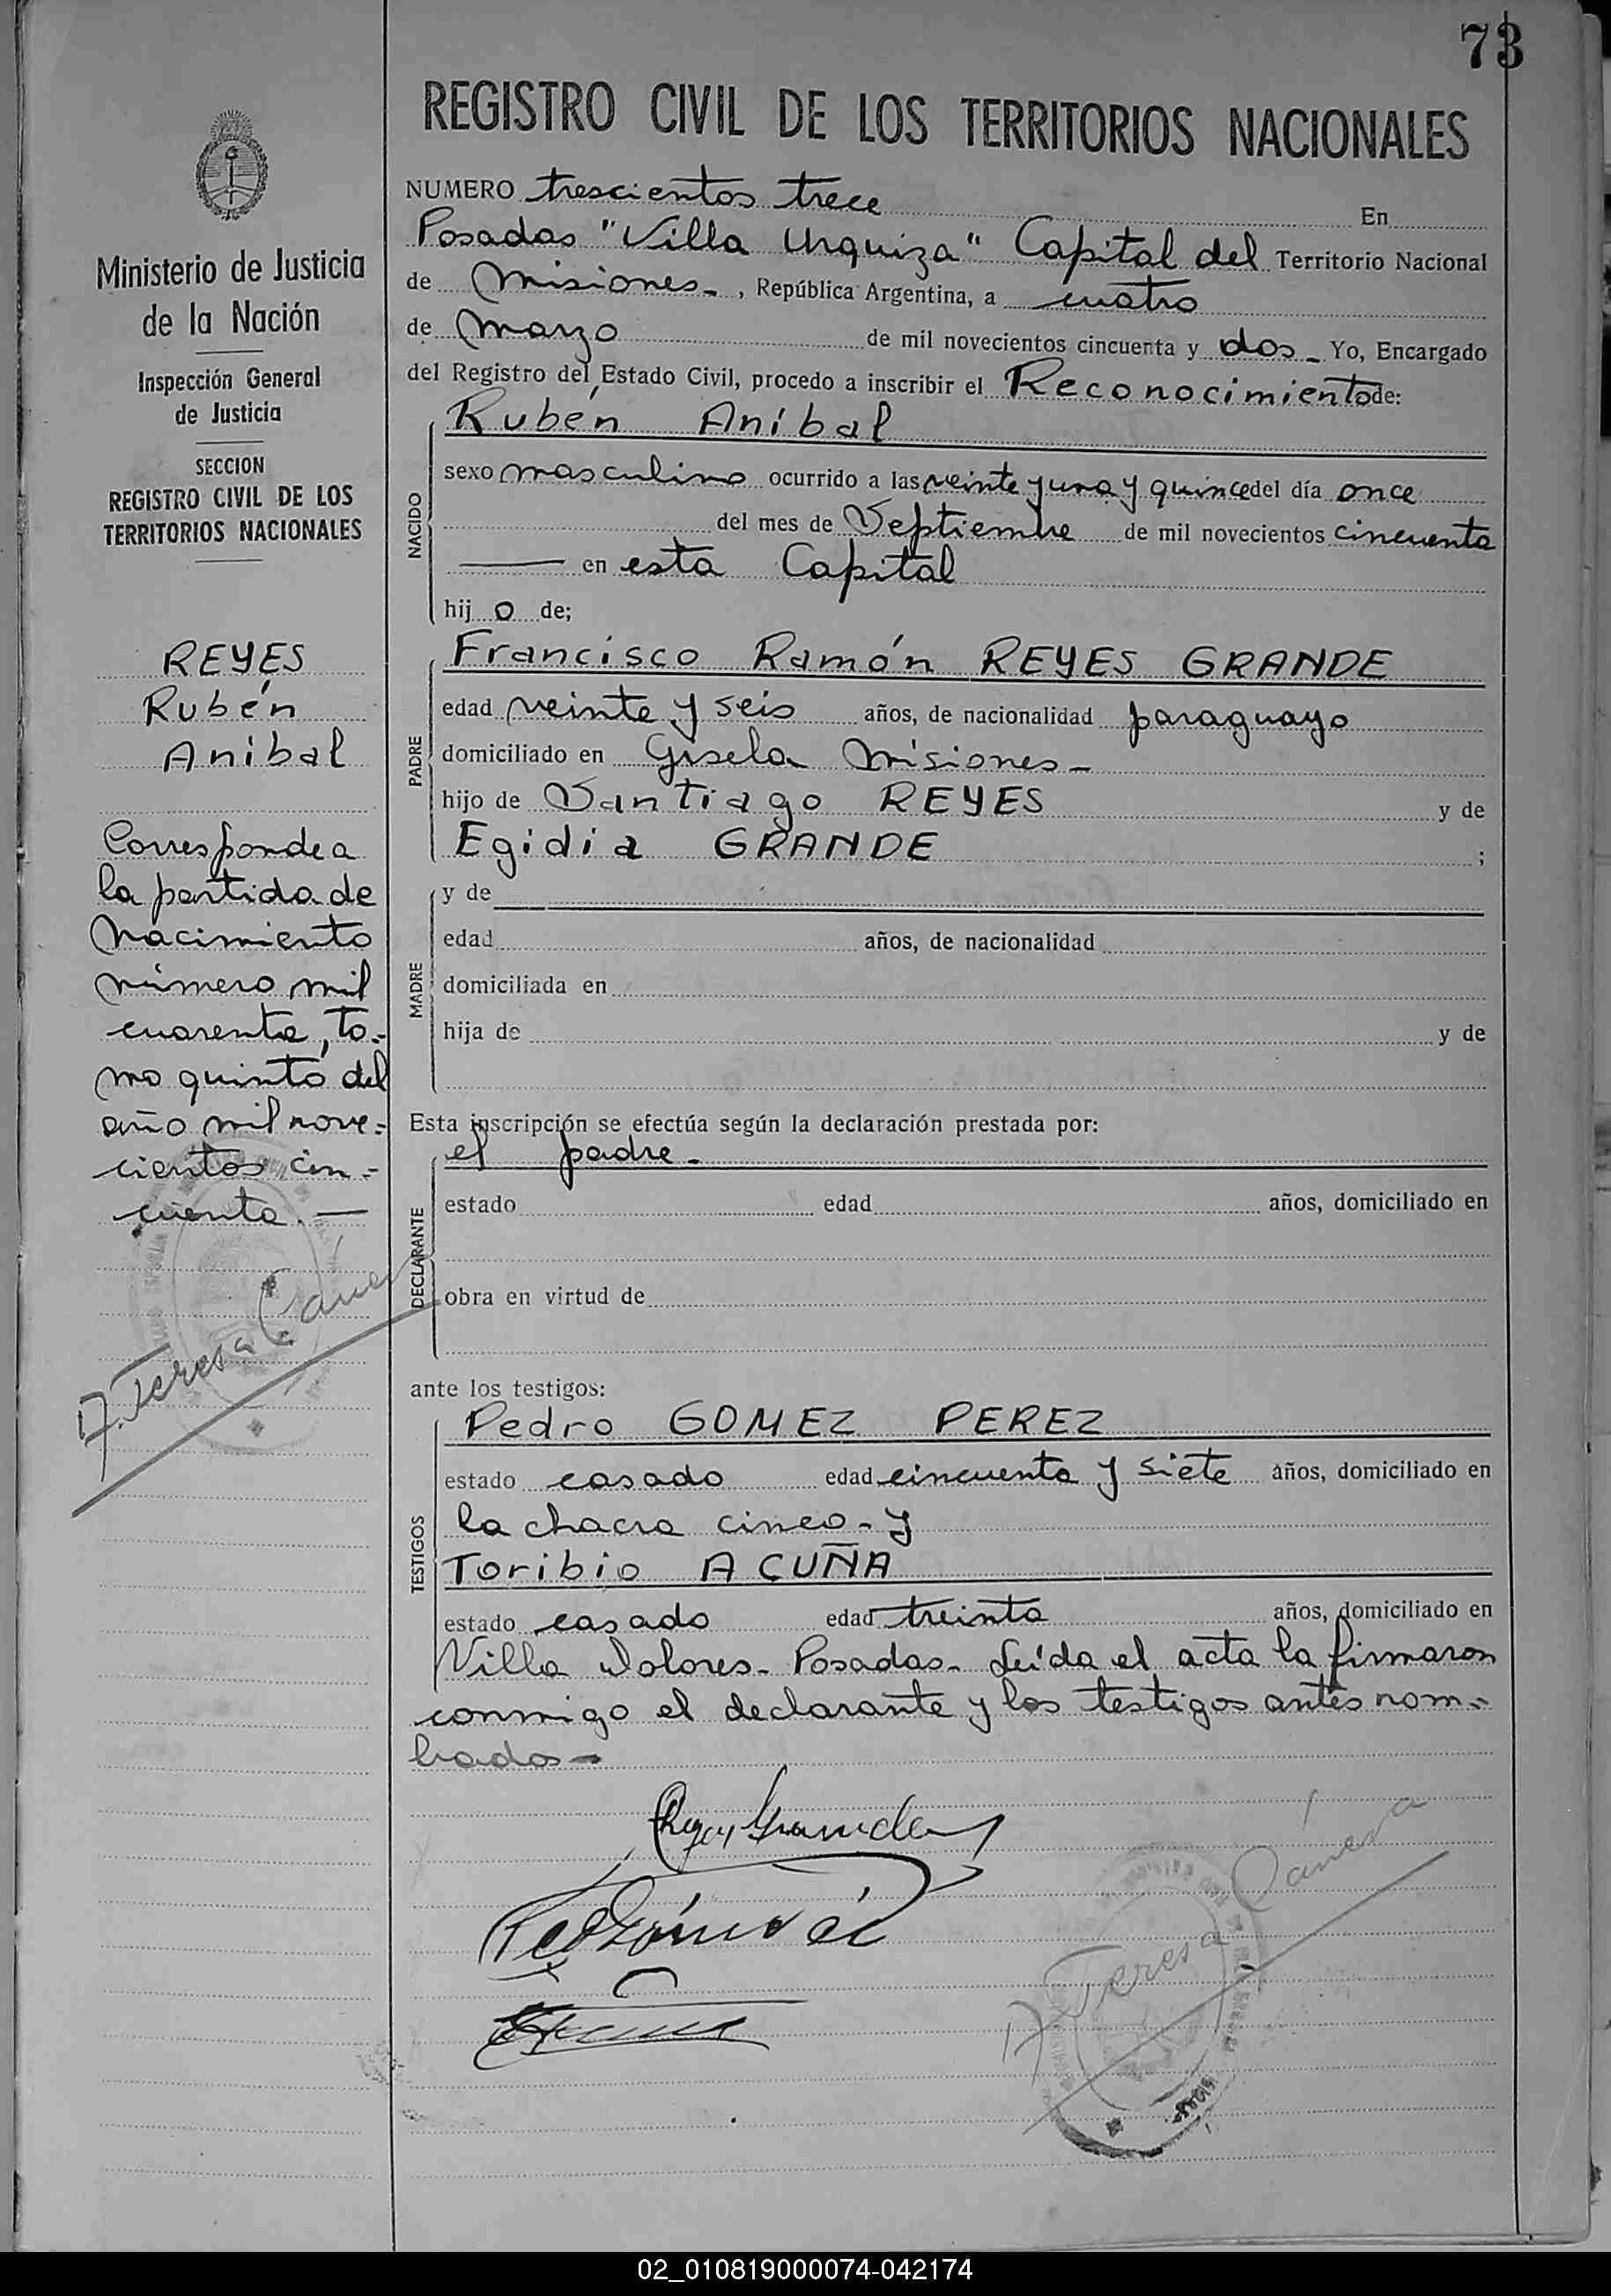 73
REGISTRO CIVIL DE LOS TERRITORIOS NACIONALES
Ministerio de Justicia
de la Nación
Inspección General
de Justicia
SECCION
REGISTRO CIVIL DE LOS
TERRITORIOS NACIONALES
REYES
Rubén
Aníbal
Corresponde a
la partida de
Nacimiento
número mil
cuarenta, to=
mo quinto del
año mil nove=
cientos cin=
cuenta.—
A. Teresa
NUMERO trescientos trece En
Posadas "Villa Urquiza" Capital del Territorio Nacional
de Misiones-, República Argentina, a cuatro
de Marzo de mil novecientos cincuenta y dos- Yo, Encargado
del Registro del Estado Civil, procedo a inscribir el Reconocimiento de:
NACIDO
Rubén Aníbal
sexo masculino ocurrido a las veinte y una y quince del día once
del mes de Septiembre de mil novecientos cincuenta
— en esta Capital
hij o de;
PADRE
Francisco Ramón REYES GRANDE
edad veinte y seis años, de nacionalidad paraguayo
domiciliado en Gisela Misiones-
hijo de Santiago REYES y de
Egidia GRANDE ;
MADRE
y de
edad años, de nacionalidad
domiciliada en
hija de y de
Esta inscripción se efectúa según la declaración prestada por:
DECLARANTE
el padre-
estado edad años, domiciliado en
obra en virtud de
ante los testigos:
TESTIGOS
Pedro GOMEZ PEREZ
estado casado edad cincuenta y siete años, domiciliado en
la chacra cinco- y
Toribio ACUÑA
estado casado edad treinta años, domiciliado en
Villa Dolores- Posadas- Leída el acta la firmaron
conmigo el declarante y los testigos antes nom=
brados-
Reyes Grande
A. Teresa
02_010819000074-042174